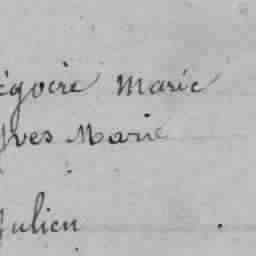 égoire Marie
Yves Marie
Julien